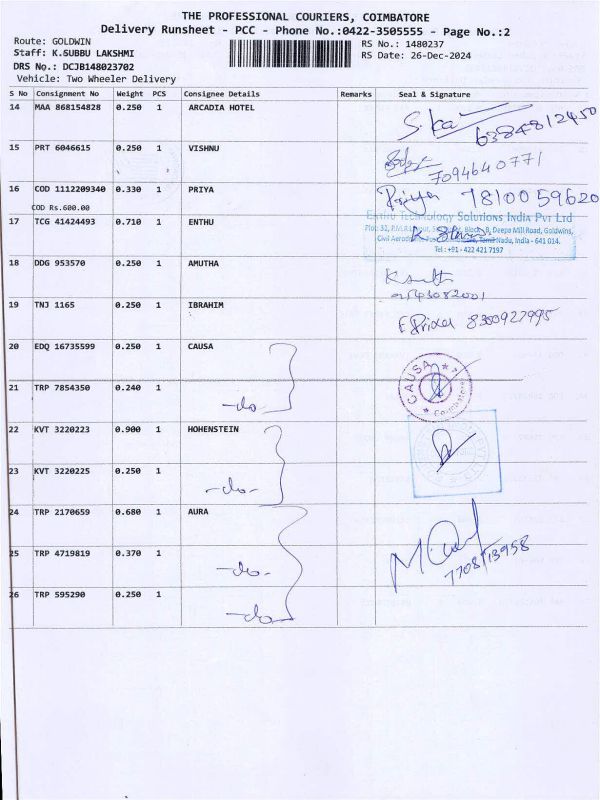 THE PROFESSIONAL COURIERS, COIMBATORE
Delivery Runsheet - PCC - Phone No.:0422-3505555 - Page No.:2
Route: GOLDWIN
RS No.: 1480237
Staff: K.SUBBU LAKSHMI
RS Date: 26-Dec-2024
DRS No.: DCJB148023702
Vehicle: Two Wheeler Delivery
S No Consignment No Weight PCS Consignee Details Remarks Seal & Signature
14 MAA 868154828 0.250 1 ARCADIA HOTEL
6384812450
15 PRT 6046615 0.250 1 VISHNU
7094640771
16 COD 1112209340 0.330 1 PRIYA Priya 7810059620
COD Rs.600.00
17 TCG 41424493 0.710 1 ENTHU
Enthu Technology Solutions India Pvt Ltd
Block, B, Deepa Mill Road, Goldwins,
Tamil Nadu, India - 641 014.
Tel : +91 - 422 421 7197
18 DDG 953570 0.250 1 AMUTHA
19 TNJ 1165 0.250 1 IBRAHIM
8300927995
20 EDQ 16735599 0.250 1 CAUSA
CAUSA
Coimbatore
21 TRP 7854350 0.240 1 -do-
22 KVT 3220223 0.900 1 HOHENSTEIN
23 KVT 3220225 0.250 1 -do-
24 TRP 2170659 0.680 1 AURA
25 TRP 4719819 0.370 1 -do-
7708713958
26 TRP 595290 0.250 1 -do-